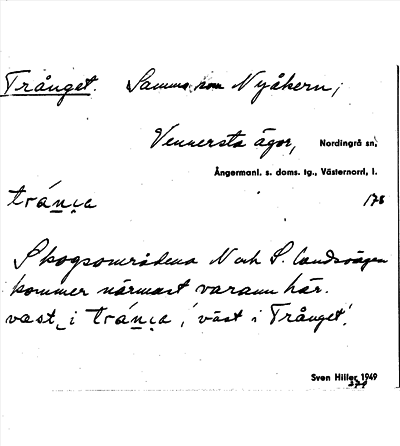 Trånget. Samma som Nyåkern,
Vennersta ägor, Nordingrå sn,
Ångermanl. s. doms. tg., Västernorrl. l.
trán̲ca 178
Skogsområdena N och S. landsvägen
kommer närmast varann här.
vast i trán̲ca, 'väst i Trånget'.
Sven Hiller 1949